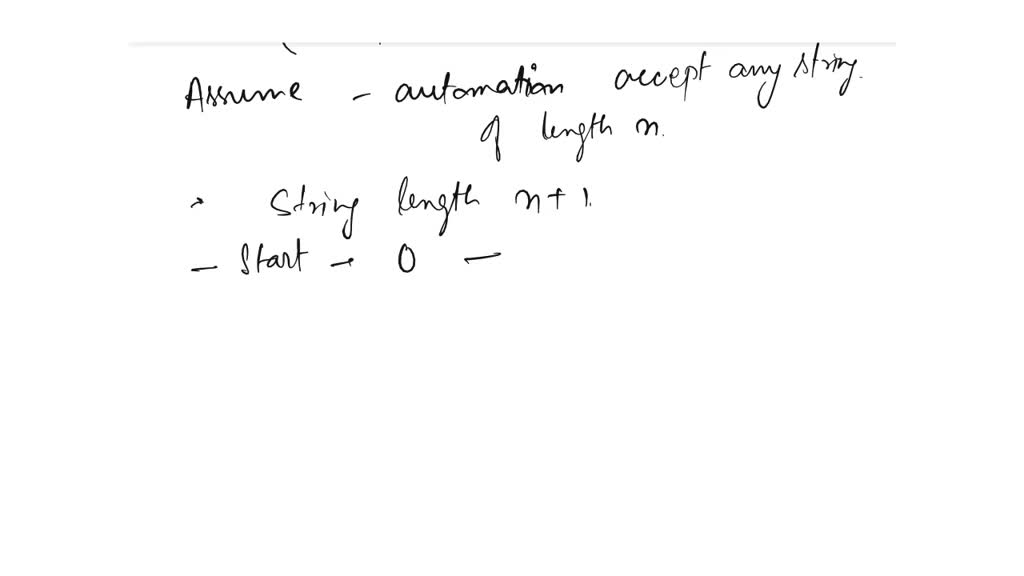 Assume - automation accept any string.
of length n.
String length n+1.
- Start - 0 -